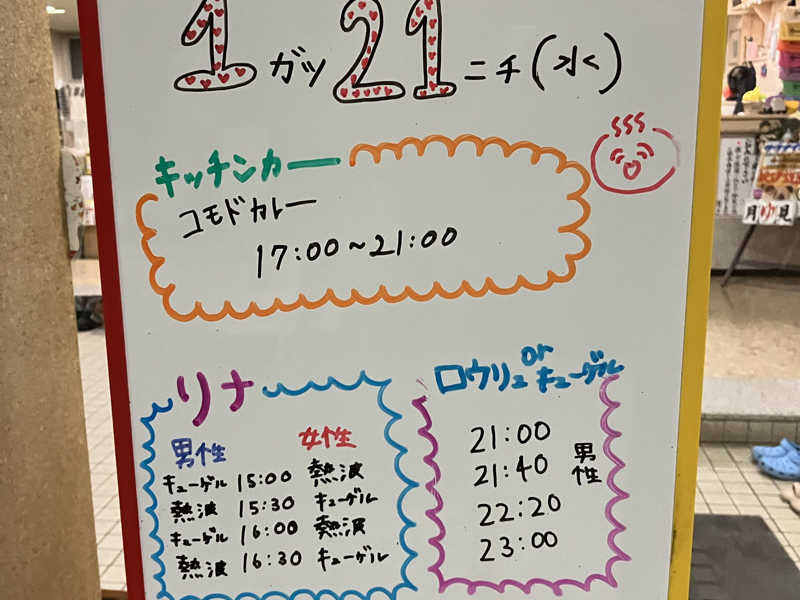 1ガツ21ニチ(水)
キッチンカー
コモドカレー
17:00~21:00
リナ
男性 女性
キューゲル 15:00 熱波
熱波 15:30 キューゲル
キューゲル 16:00 熱波
熱波 16:30 キューゲル
ロウリュ or キューゲル
21:00
21:40
22:20
23:00
男性
月ゆ見